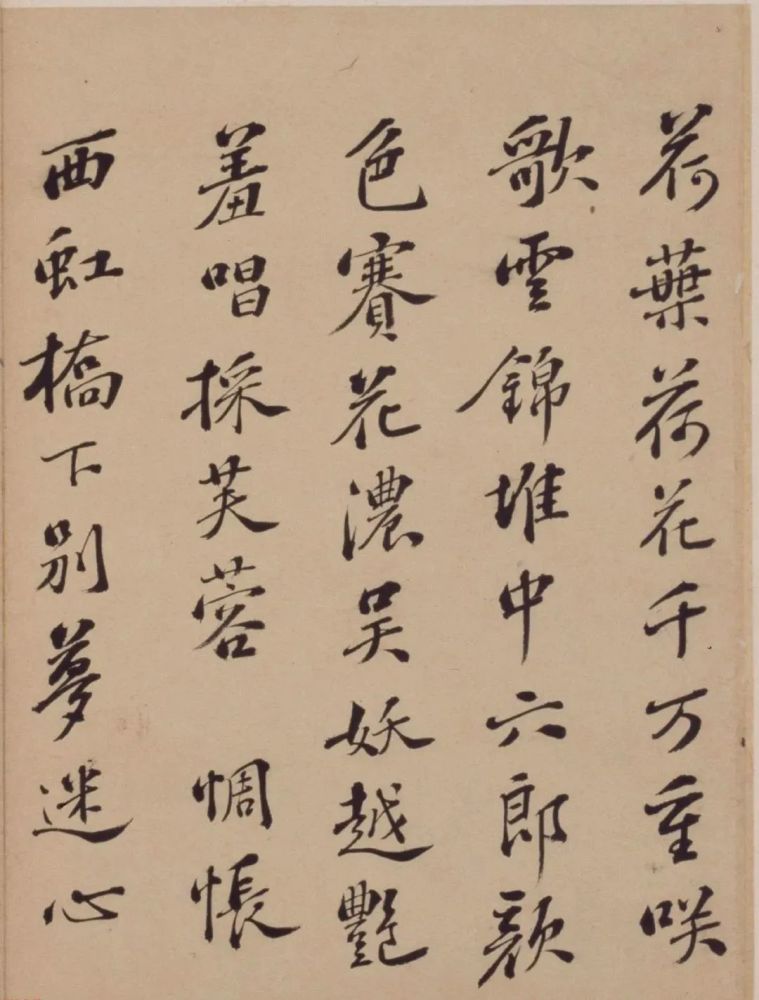 荷葉荷花千万重咲
歌雲錦堆中六郎顔
色賽花濃吴妖越艷
羞唱採芙蓉 惆悵
西虹橋下别夢迷心